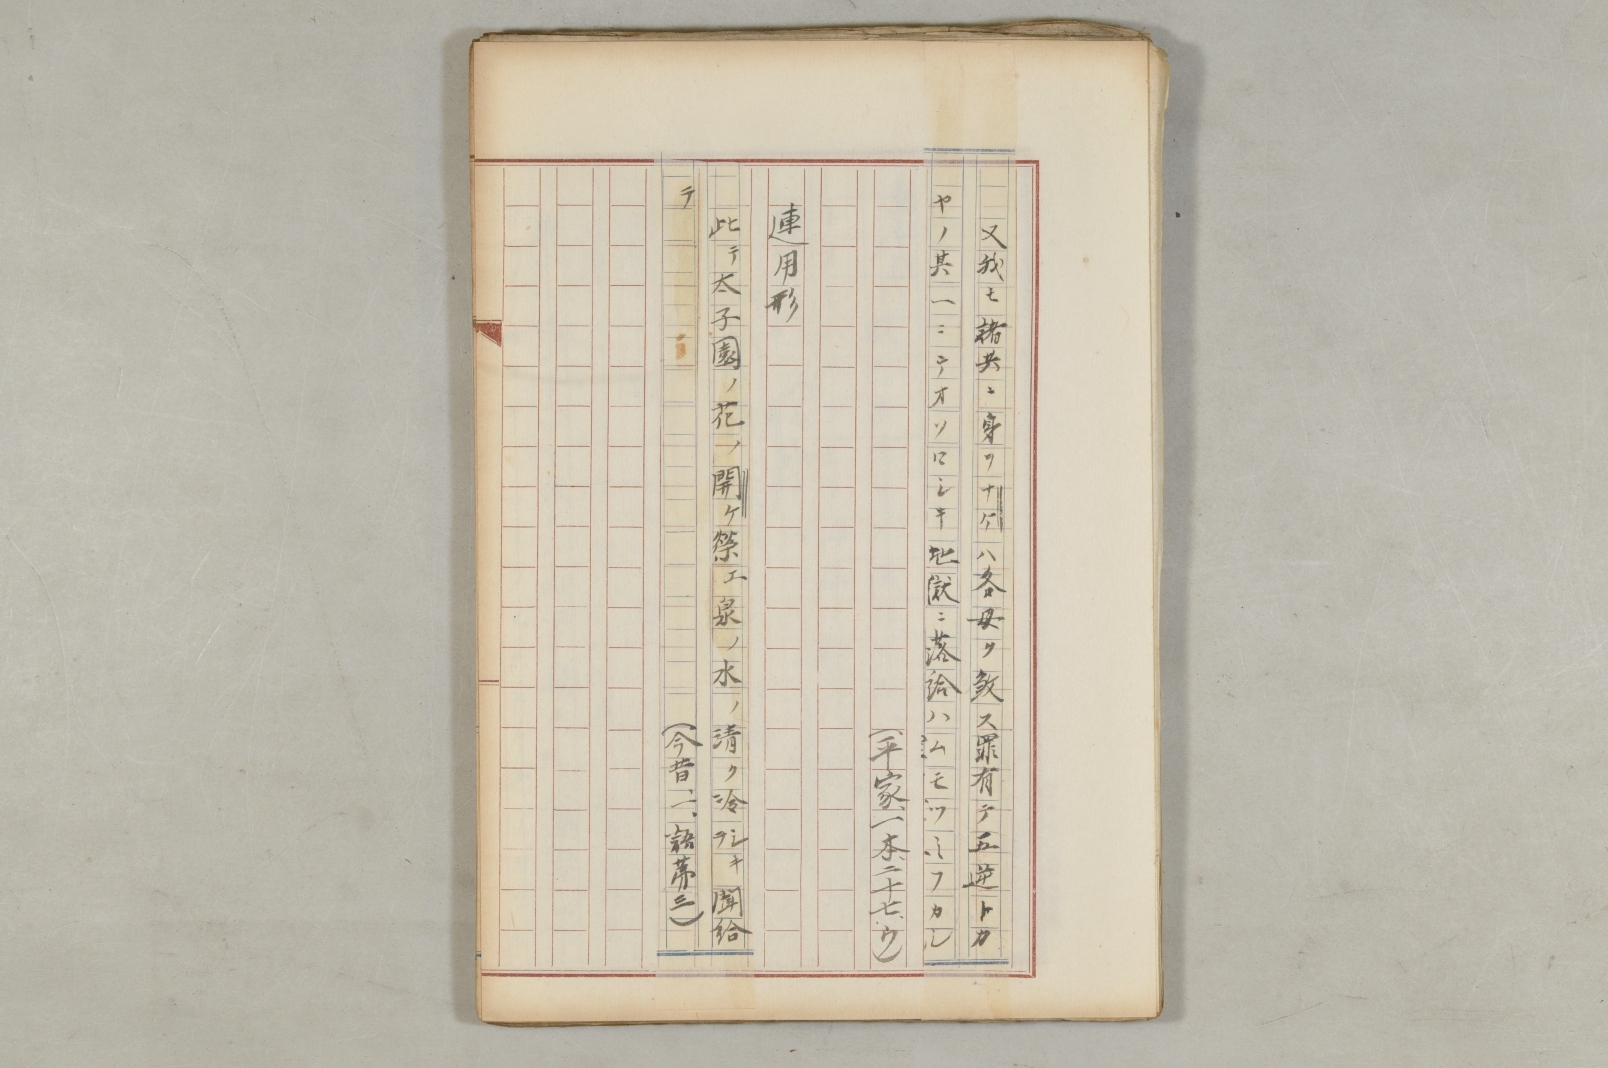 又我モ諸共ニ身ヲナケハ各母ヲ敎ス罪有テ五逆トカ
ヤノ其一ニテオソロシキ地獄ニ落給ハムモツミフカシ
(平家、一本、二十七、ウ)
連用形
此テ太子園ノ花ノ開ケ榮エ泉ノ水ノ清ク冷ラシキ聞給
テ
(今昔、一、語第三)